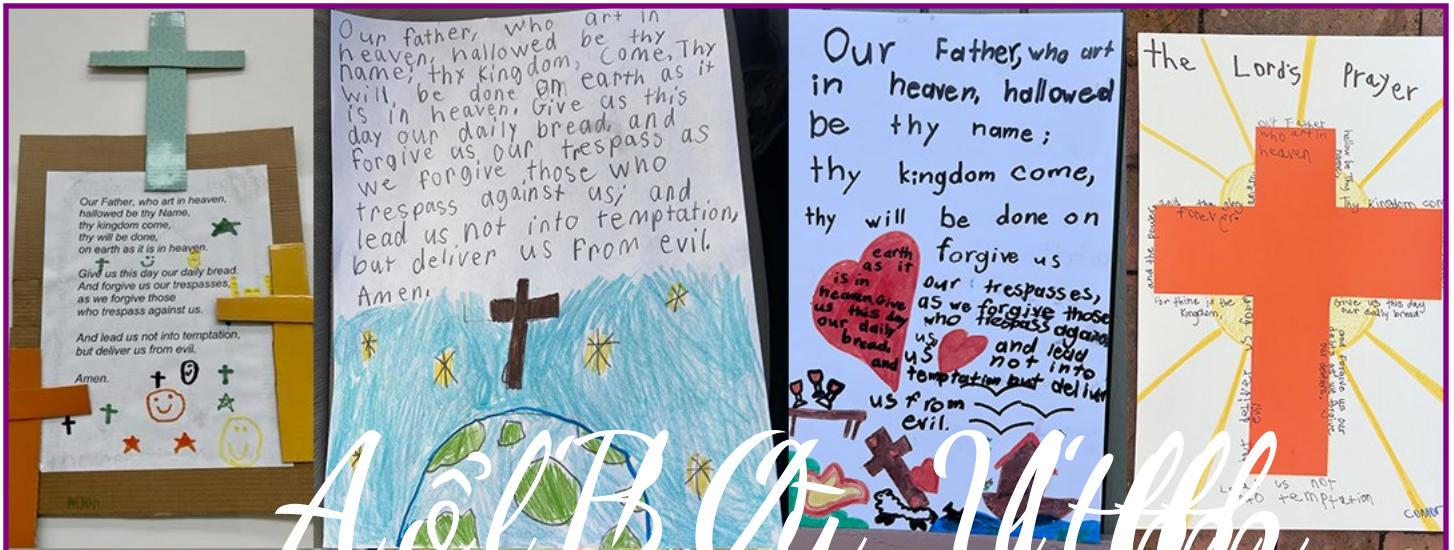 Our Father, who art in heaven,
hallowed be thy Name,
thy kingdom come,
thy will be done,
on earth as it is in heaven.
Give us this day our daily bread.
And forgive us our trespasses,
as we forgive those
who trespass against us.
And lead us not into temptation,
but deliver us from evil.
Amen.
Our father, who art in
heaven, hallowed be thy
name; thy kingdom, Come, Thy
will, be done on earth as it
is in heaven. Give us this
day our daily bread, and
forgive us our trespass as
we forgive those who
trespass against us; and
lead us not into temptation,
but deliver us from evil.
Amen.
Our Father, who art
in heaven, hallowed
be thy name;
thy kingdom come,
thy will be done on
earth
as it
is in
heaven. Give
us this day
our daily
bread,
and
forgive us
our trespasses,
as we forgive those
who trespass against
us
us and lead
not into
temptation but deliver
us from
evil.
the Lord's Prayer
our Father
who art in
heaven
hallow be Thy
name
Thy kingdom com
Give us this day
our daily bread
and forgive us our
debts as we forgive
our debters.
Lead us not
to temptation
but deliver us
For thine is the
kingdom,
and the power
and the
forever
Connor